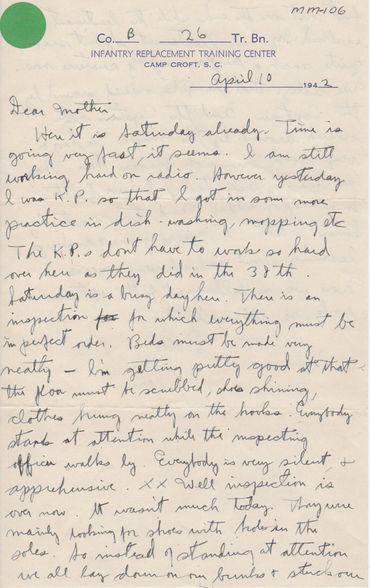 MM-106
Co. B 26 Tr. Bn.
INFANTRY REPLACEMENT TRAINING CENTER
CAMP CROFT, S. C.
April 10 1942
Dear Mother
Here it is Saturday already. Time is
going very fast, it seems. I am still
working hard on radio. However yesterday
I was K.P. so that I got in som more
practice in dish-washing, mopping etc
The K.P.s don't have to work so hard
over here as they did in the 38th.
Saturday is a busy day here. There is an
inspection for which everything must be
in perfect order. Beds must be made very
neatly — I'm getting pretty good at that
the floor must be scrubbed, shoes shining,
clothes hung neatly on the hooks. Everybody
stands at attention while the inspecting
officer walks by. Everybody is very silent, &
apprehensive. XX Well inspection is
over now. It wasn't much today. They were
mainly looking for shoes with holes in the
soles. So instead of standing at attention
we all lay down on our bunks & stuck our